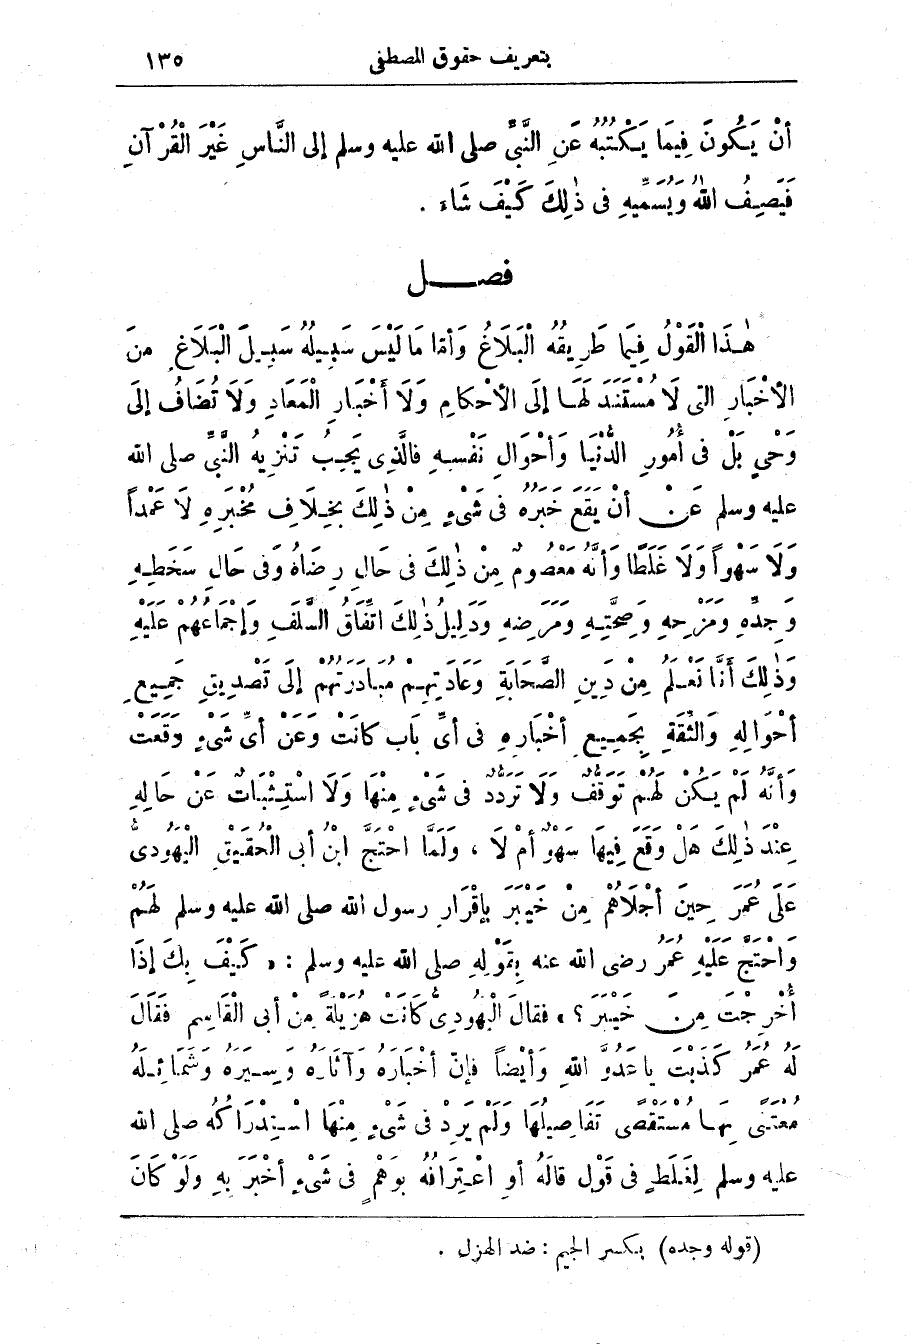 بتعريف حقوق المصطفى ١٣٥
أَنْ يَكُونَ فِيمَا يَكْتُبُهُ عَنِ النَّبِيِّ صلى الله عليه وسلم إلى النَّاسِ غَيْرَ الْقُرْآنِ
فَيَصِفُ اللهَ وَيُسَمِّيهِ فى ذٰلِكَ كَيْفَ شَاءَ .
فصـــل
هٰذَا الْقَوْلُ فِيمَا طَرِيقُهُ الْبَلَاغُ وَأمّا مَا لَيْسَ سَبِيلُهُ سَبِيلَ الْبَلَاغِ مِنَ
الأخْبَارِ التى لَا مُسْتَنَدَ لَهَا إلَى الأحْكامِ وَلَا أَخْبَارِ الْمَعَادِ وَلَا تُضَافُ إلَى
وَحْيٍ بَلْ فى أُمُورِ الدُّنْيَا وَأحْوَالِ نَفْسِهِ فالَّذِى يَجِبُ تَنْزِيهُ النَّبِيِّ صلى الله
عليه وسلم عَنْ أنْ يَقَعَ خَبَرُهُ فى شَىْءٍ مِنْ ذٰلِكَ بِخِلَافِ مُخْبَرِهِ لَا عَمْداً
وَلَا سَهْواً وَلَا غَلَطًا وَأنَّهُ مَعْصُومٌ مِنْ ذٰلِكَ فى حَالِ رِضَاهُ وَفى حَالِ سَخَطِهِ
وَجِدِّهِ وَمَزْحِهِ وَصِحَّتِهِ وَمَرَضِهِ وَدَلِيلُ ذٰلِكَ اتِّفَاقُ السَّلَفِ وَإجْمَاعُهُمْ عَلَيْهِ
وَذٰلِكَ أَنَّا نَعْلَمُ مِنْ دِينِ الصَّحَابَةِ وَعَادَتِهِمْ مُبَادَرَتُهُمْ إلَى تَصْدِيقِ جَمِيعِ
أحْوَالِهِ وَالثِّقَةِ بِجَمِيعِ أخْبَارِهِ فى أىِّ بَابٍ كانَتْ وَعَنْ أىِّ شَىْءٍ وَقَعَتْ
وَأنَّهُ لَمْ يَكُنْ لَهُمْ تَوَقُّفٌ وَلَا تَرَدُّدٌ فى شَىْءٍ مِنْهَا وَلَا اسْتِثْبَاتٌ عَنْ حَالِهِ
عِنْدَ ذٰلِكَ هَلْ وَقَعَ فِيهَا سَهْوٌ أمْ لَا ، وَلَمَّا احْتَجَّ ابْنُ أبى الْحُقَيْقِ الْيَهُودىُّ
عَلَى عُمَرَ حِينَ أجْلَاهُمْ مِنْ خَيْبَرَ بإِقْرَارِ رسول الله صلى الله عليه وسلم لَهُمْ
وَاحْتَجَّ عَلَيْهِ عُمَرُ رضى الله عنه بِقَوْلِهِ صلى الله عليه وسلم : « كَيْفَ بِكَ إذَا
أُخْرِجْتَ مِنْ خَيْبَرَ ؟ » فقالَ الْيَهُودىُّ كانَتْ هُزَيْلَةً مِنْ أبى الْقَاسِمِ فَقَالَ
لَهُ عُمَرُ كَذَبْتَ ياعَدُوَّ اللهِ وَأيْضاً فإنّ أخْبَارَهُ وَآثَارَهُ وَسِيَرَهُ وَشَمَائِلَهُ
مُعْتَنًى بِهَا مُسْتَقْصًى تَفَاصِيلُهَا وَلَمْ يَرِدْ فى شَىْءٍ مِنْهَا اسْتِدْرَاكُهُ صلى الله
عليه وسلم لِغَلَطٍ فى قَوْلٍ قالَهُ أو اعْتِرَافُهُ بِوَهْمٍ فى شَىْءٍ أخْبَرَ بِهِ وَلَوْ كَانَ
(قوله وجده) بكسر الجيم : ضد الهزل .